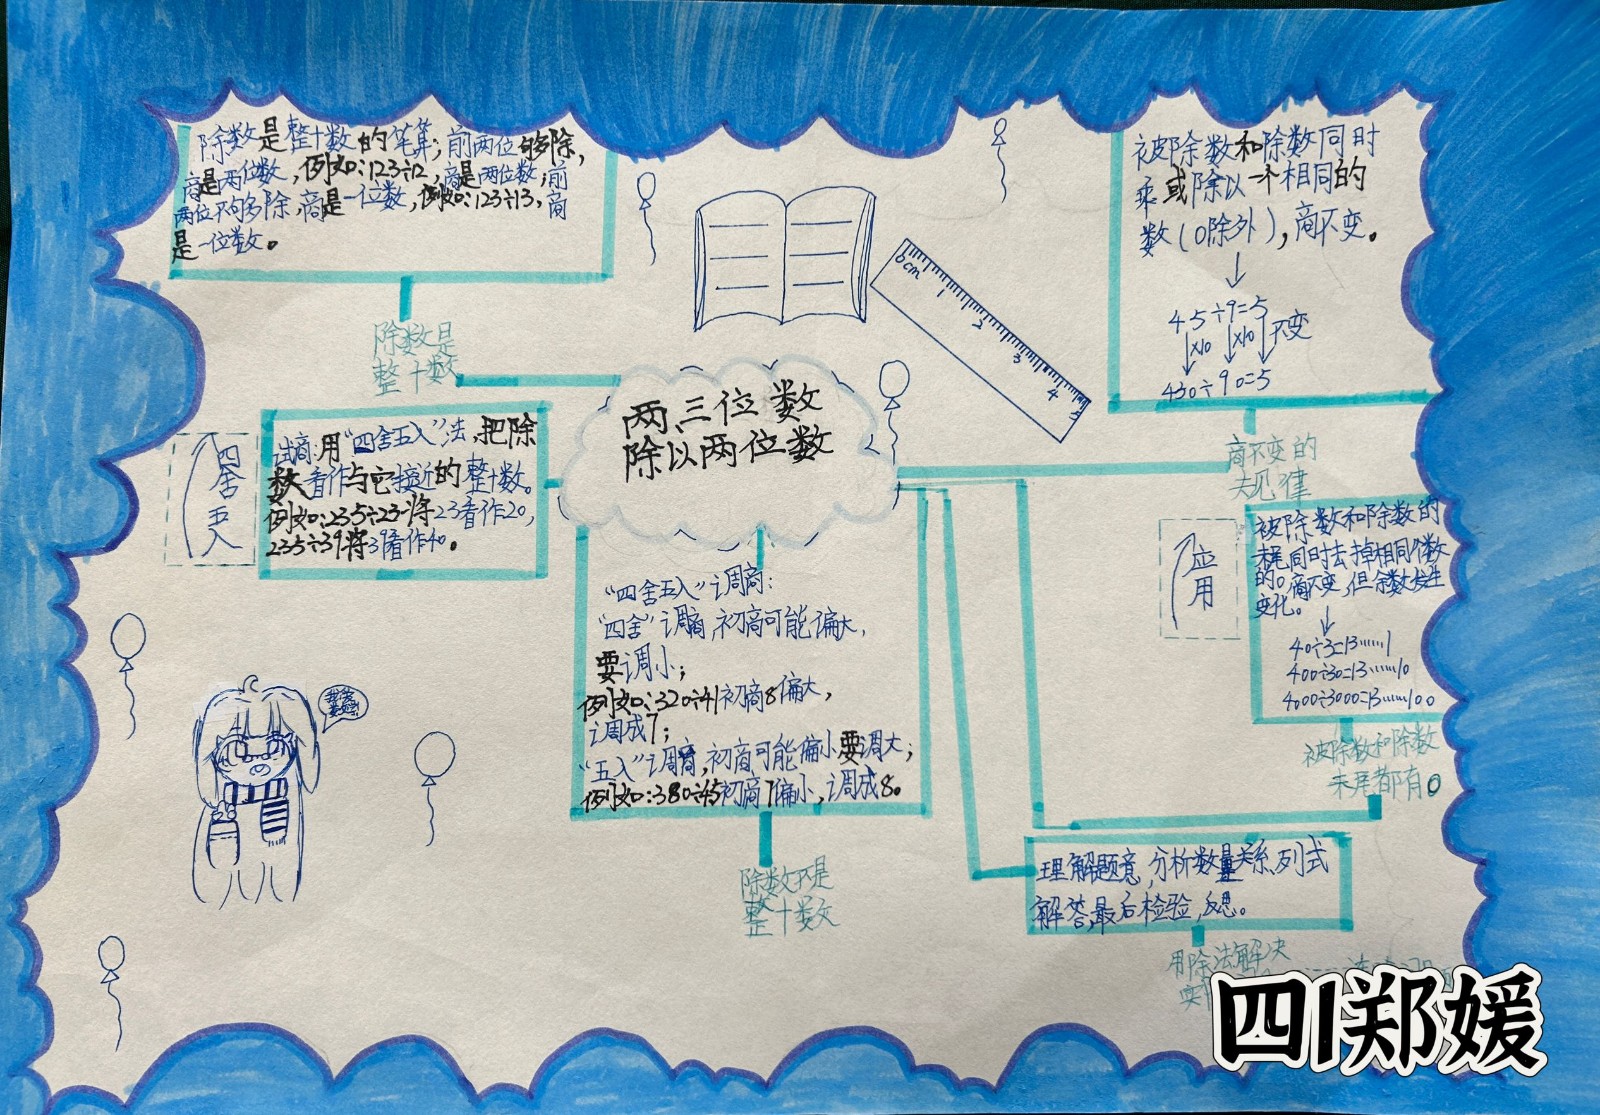 除数是整十数的笔算；前两位够除，
商是两位数，例如：123÷12，商是两位数；前
两位不够除，商是一位数，例如：123÷13，商
是一位数。
除数是
整十数
试商：用“四舍五入”法，把除
数看作与它接近的整十数。
例如：235÷23将23看作20，
235÷39将39看作40。
四舍五入
两、三位数
除以两位数
0cm 1 2 3 4 5
“四舍五入”调商：
“四舍”调商，初商可能偏大，
要调小；
例如：320÷41初商8偏大，
调成7；
“五入”调商，初商可能偏小要调大；
例如：380÷45初商7偏小，调成8。
除数不是
整十数
被除数和除数同时
乘或除以一个相同的
数（0除外），商不变。
45÷9=5
×10 ×10 不变
450÷90=5
商不变的
规律
应用
被除数和除数的
末尾同时去掉相同个数
的0，商不变，但余数发生
变化。
40÷3=13……1
400÷30=13……10
4000÷3000=13……100
被除数和除数
末尾都有0
理解题意，分析数量关系，列式
解答，最后检验，反思。
用除法解决
四1郑媛